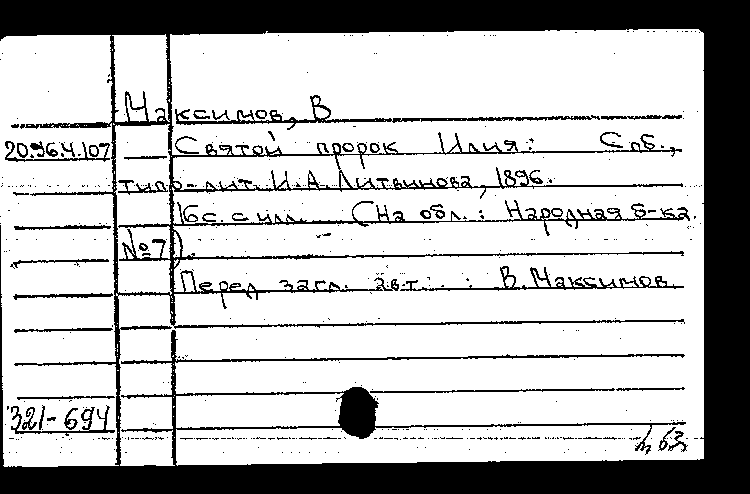 Максимов, В
20.96.4.107 Святой пророк Илия: Спб.,
типо-лит. И.А. Литвинова, 1896.
16с. с илл. (На обл.: Народная б-ка.
№7).
Перед загл. авт.: В. Максимов
321-694